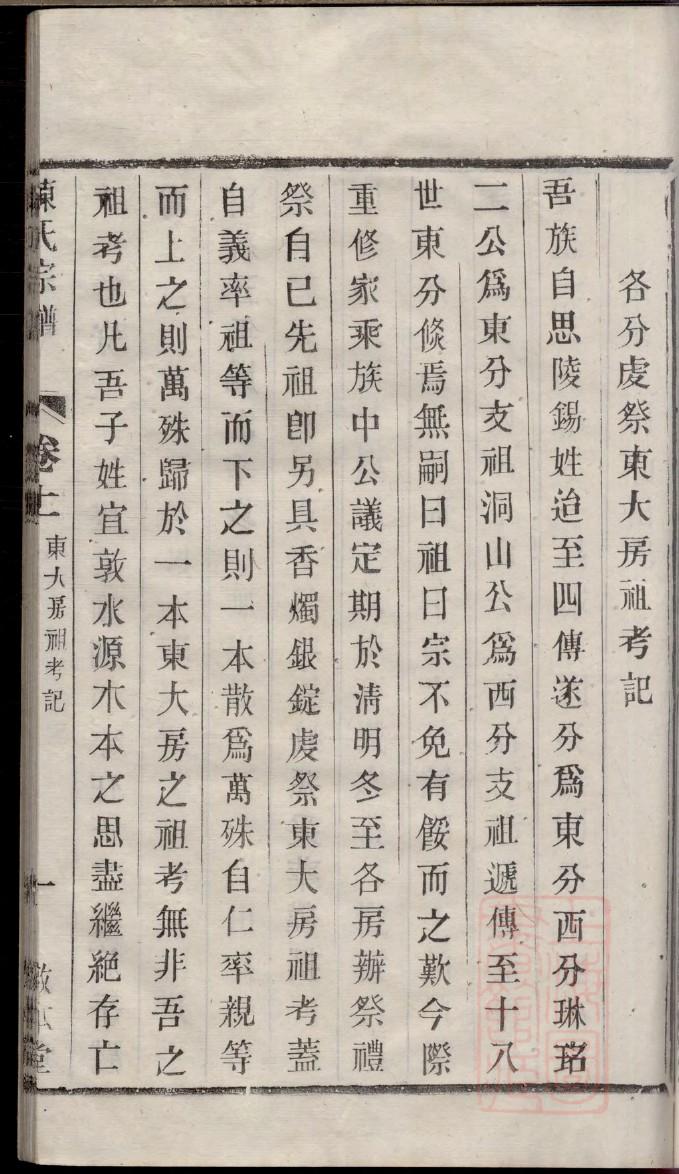 各分虔祭東大房祖考記
吾族自思陵錫姓迨至四傳遂分爲東分西分琳珆
二公爲東分支祖洞山公爲西分支祖遞傳至十八
世東分倐焉無嗣曰祖曰宗不免有餒而之歎今際
重修家乘族中公議定期於清明冬至各房辦祭禮
祭自已先祖卽另具香燭銀錠虔祭東大房祖考蓋
自義率祖等而下之則一本散爲萬殊自仁率親等
而上之則萬殊歸於一本東大房之祖考無非吾之
祖考也凡吾子姓宜敦水源木本之思盡繼絶存亡
陳氏宗譜
卷十
東大房祖考記
一
堂